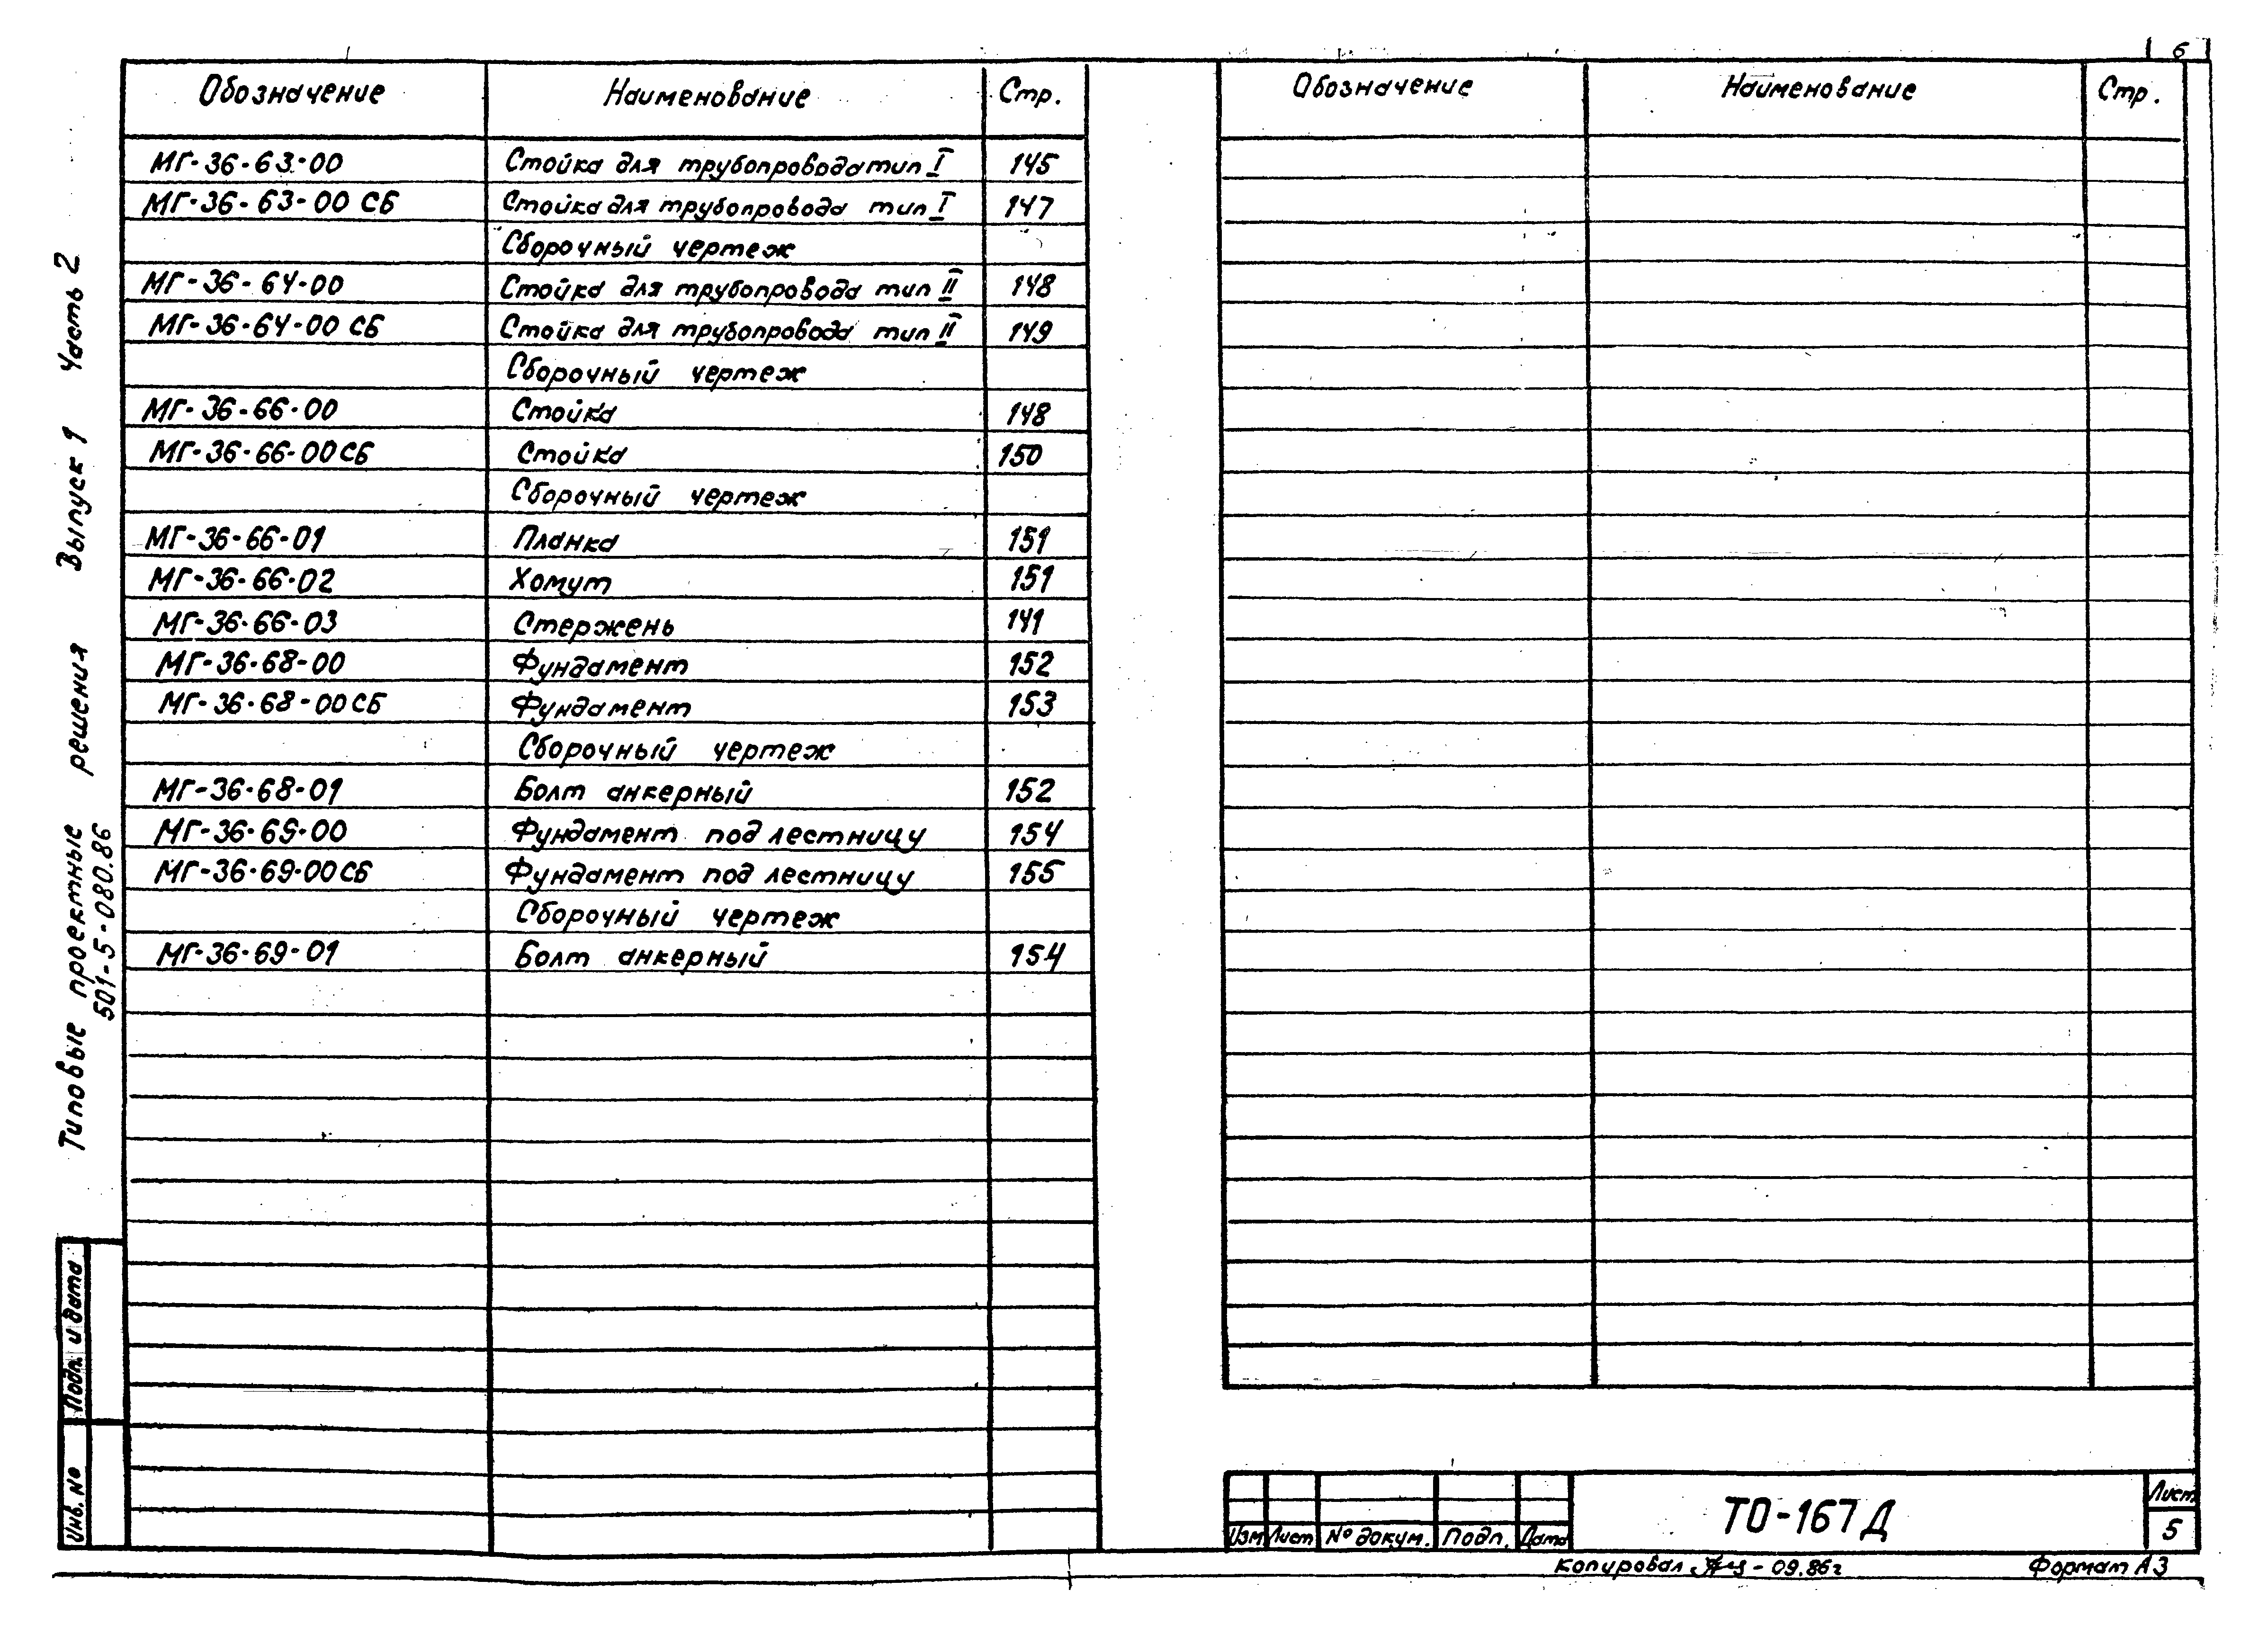 6
Обозначение Наименование Стр.
МГ-36-63-00 Стойка для трубопровода тип I 145
МГ-36-63-00 СБ Стойка для трубопровода тип I 147
Сборочный чертеж
МГ-36-64-00 Стойка для трубопровода тип II 148
МГ-36-64-00 СБ Стойка для трубопровода тип II 149
Сборочный чертеж
МГ-36-66-00 Стойка 148
МГ-36-66-00 СБ Стойка 150
Сборочный чертеж
МГ-36-66-01 Планка 151
МГ-36-66-02 Хомут 151
МГ-36-66-03 Стержень 141
МГ-36-68-00 Фундамент 152
МГ-36-68-00 СБ Фундамент 153
Сборочный чертеж
МГ-36-68-01 Болт анкерный 152
МГ-36-69-00 Фундамент под лестницу 154
МГ-36-69-00 СБ Фундамент под лестницу 155
Сборочный чертеж
МГ-36-69-01 Болт анкерный 154
Обозначение Наименование Стр.
Типовые проектные решения Выпуск 1 Часть 2
501-5-080.86
Подп. и дата
Инв. №
Изм Лист № докум. Подп. Дата
ТО-167Д
Лист
5
Копировал - 09.86г
Формат А3